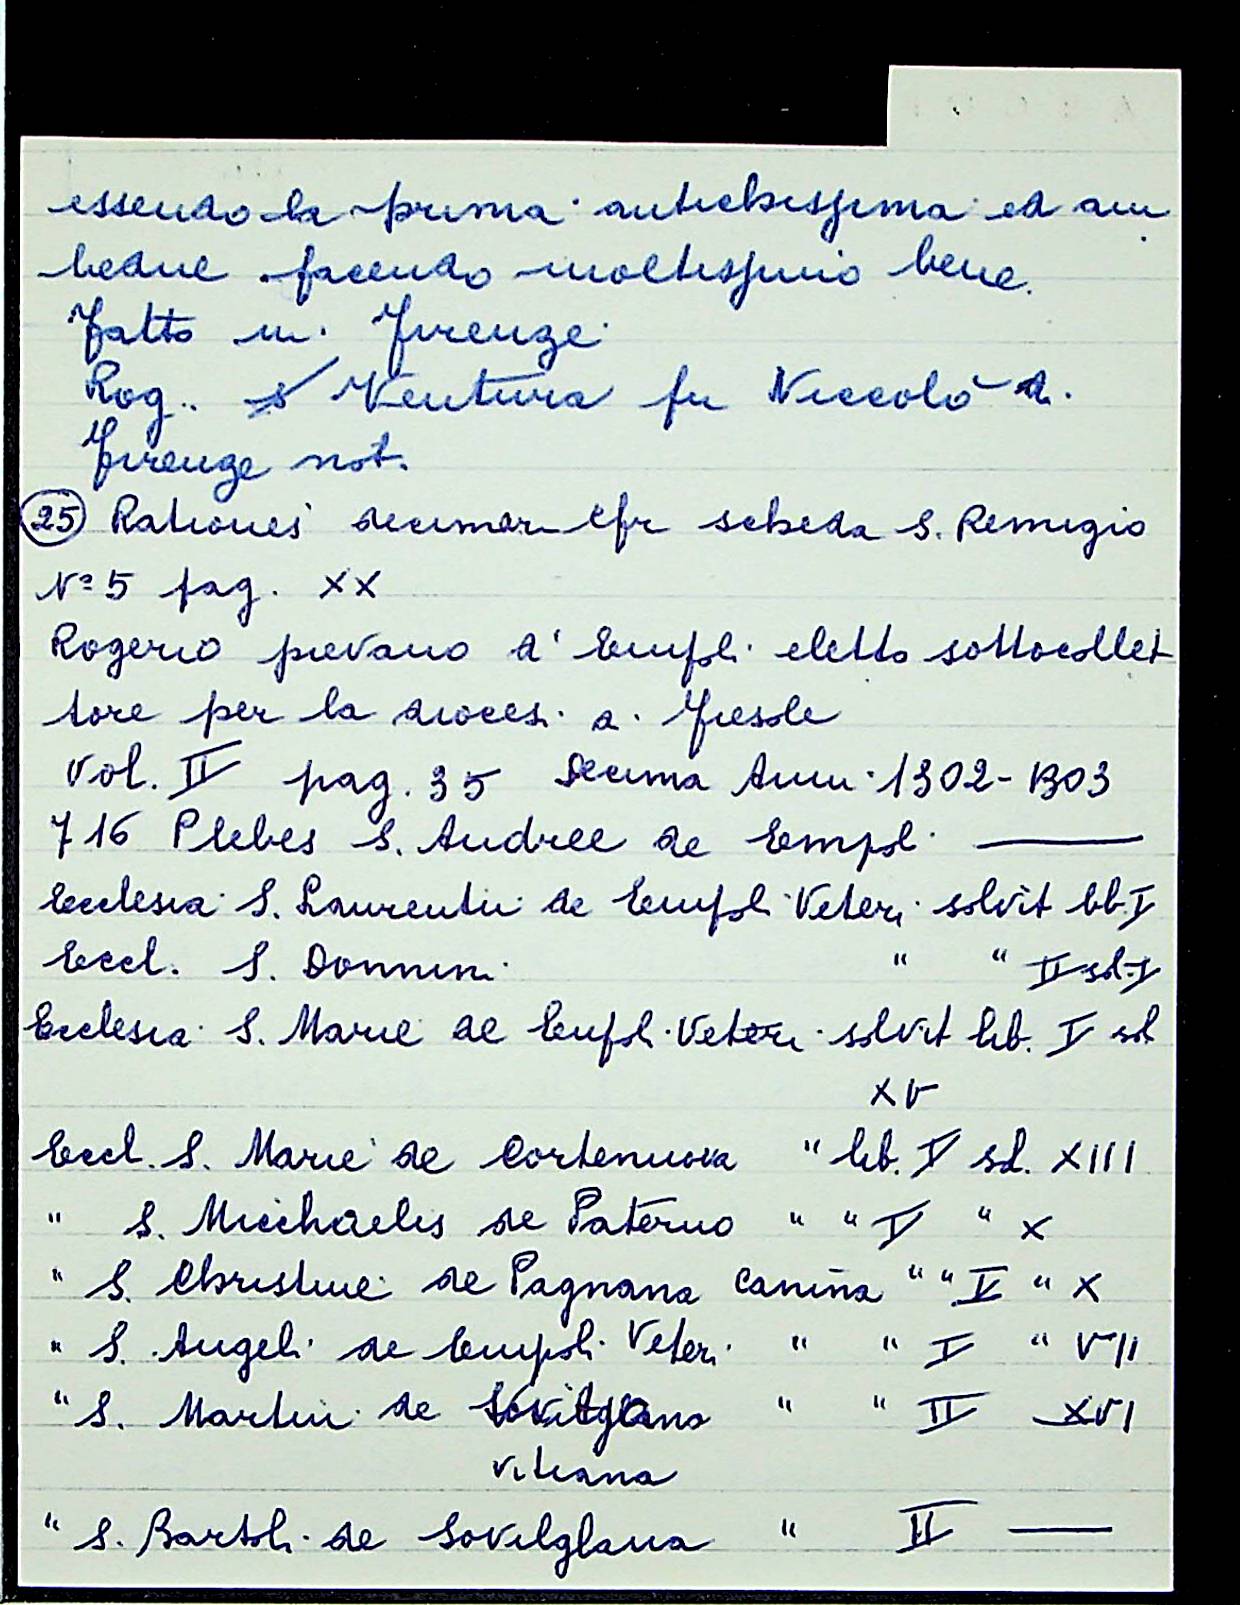 essendo la prima antichissima ed am
bedue facendo moltissimo bene.
Fatto in Firenze
Rog. Ventura fu Niccolò di
Firenze not.
25 Rationes decimar cfr scheda S. Remigio
N° 5 pag. XX
Rogerio pievano d'Empoli eletto sottocollet
tore per la diocesi di Fiesole
Vol. II pag. 35 Decima Anni 1302-1303
716 Plebes S. Andree de Empoli —
Ecclesia S. Laurentii de Empoli Veteri solvit lib. I
Eccl. S. Donnini " " II sol. I
Ecclesia S. Marie de Empoli Veteri solvit lib. V sol
XV
Eccl. S. Marie de Cortenuova " lib. V sol. XIII
" S. Michaelis de Paterno " " V " X
" S. Christine de Pagnana Canina " " V " X
" S. Angeli de Empoli Veteri " " I " VII
" S. Martini de " " II XVI
vitiana
" S. Bartoli de Sovilgliana " II —